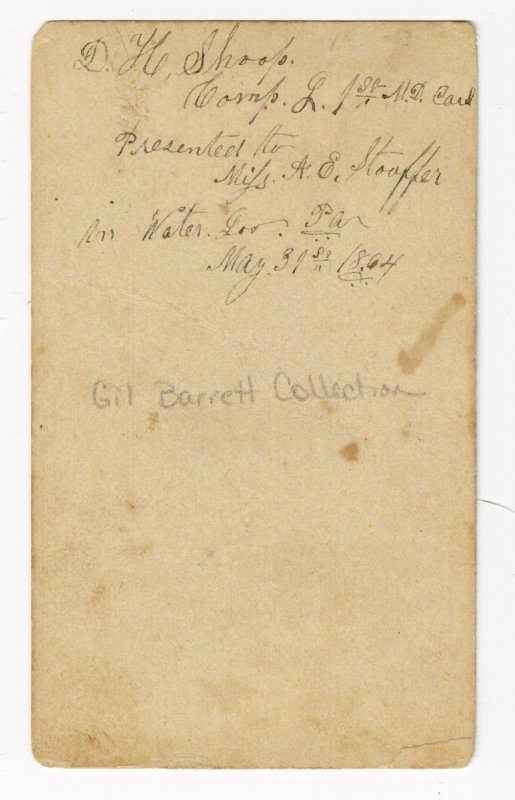 D. H. Shoop.
Comp. L. 1st M.D. Cav
Presented to
Miss. A. E. Stouffer
in Water. Loo. Pa
May. 31st 1864
Gil Barrett Collection